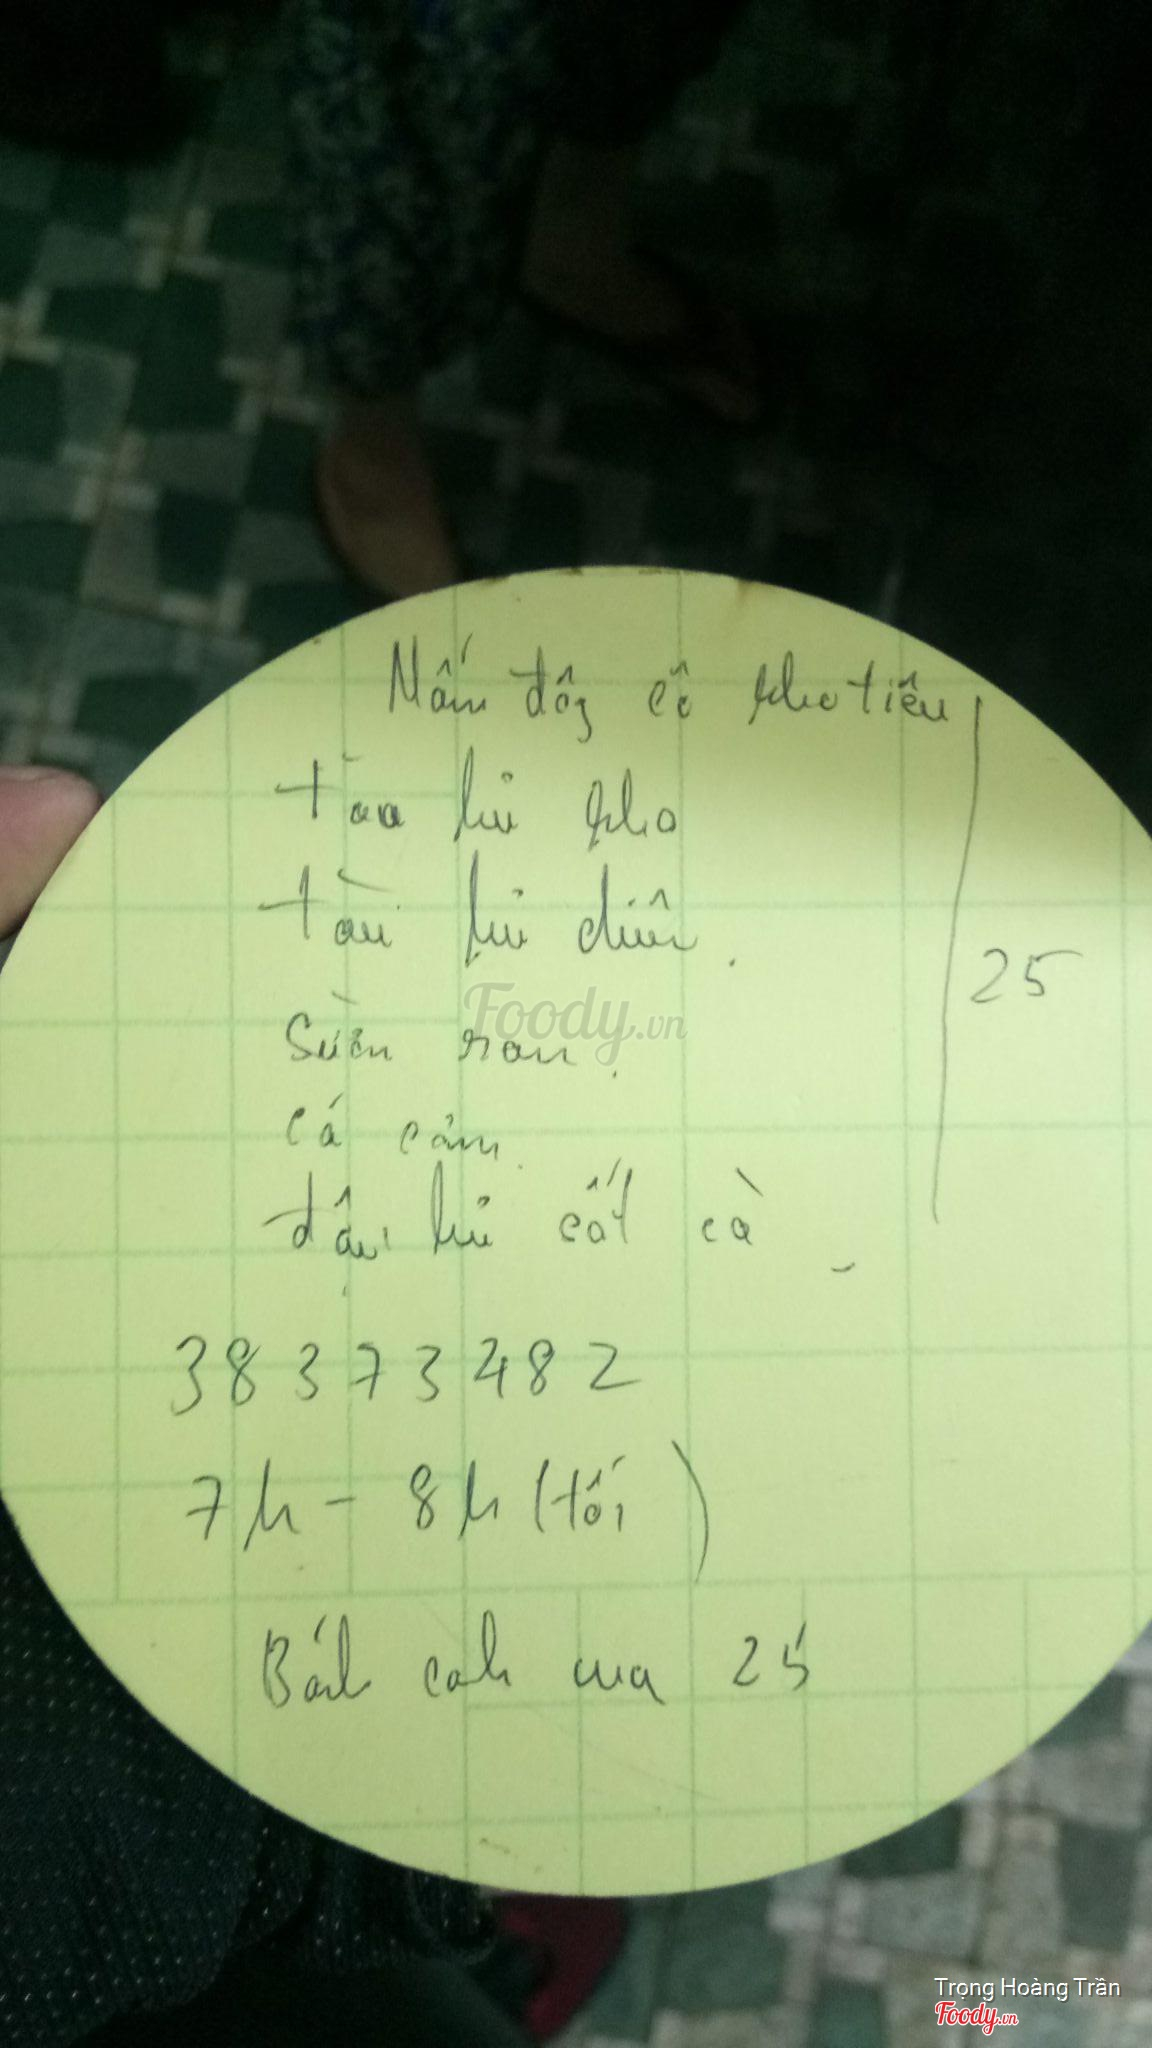 Nấm đông cô kho tiêu
tàu hủ kho
tàu hủ chiên.
25
Foody.vn
Sườn ran.
cá cơm
đậu hủ cốt cà
38373482
7h - 8h (tối)
Bánh canh cua 25
Trọng Hoàng Trần
Foody.vn